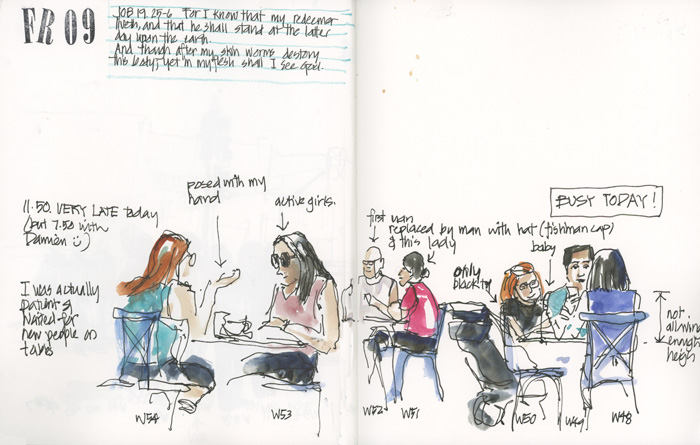 FR 09
JOB 19. 25-6 For I know that my redeemer
liveth, and that he shall stand at the latter
day upon the earth.
And though after my skin worms destroy
this body, yet in my flesh shall I see God.
11.50. VERY LATE today
(but 7.50 with
Damien :))
I was actually
patiently
waited for
new people on
tables
posed with my
hand
active girls.
first man
replaced by man with hat (fishman cap)
& this lady
only
black
baby
BUSY TODAY!
not
enough
W54
W53
W52
W51
W50
W49
W48